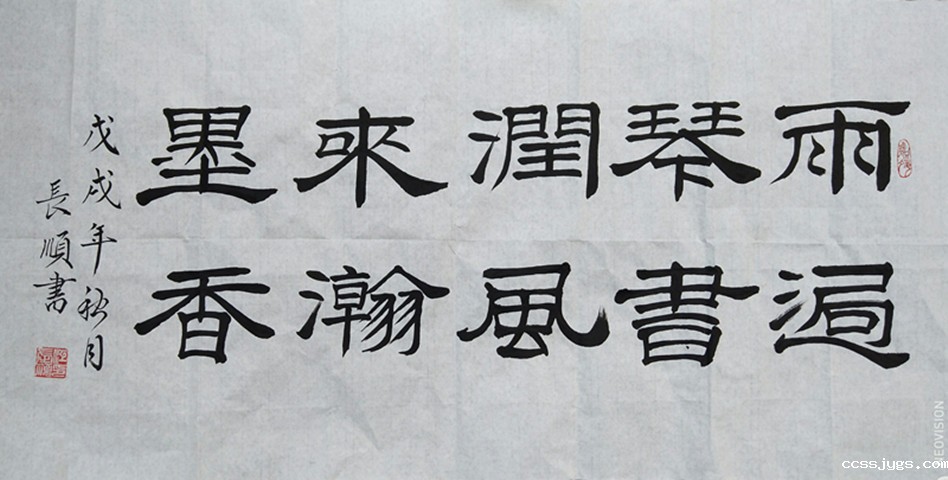 雨過
琴書
潤風
來瀚
墨香
戊戌年秋月
長順書
NEOVISION
ccssjygs.com